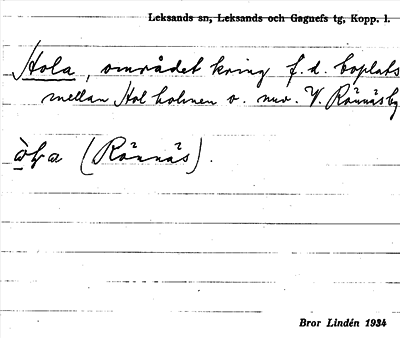 Leksands sn, Leksands och Gagnefs tg, Kopp. l.
Hola, området kring f.d. boplats
mellan Holholmen o. nuv. V. Rönnäsby
(Rönnäs).
Bror Lindén 1934